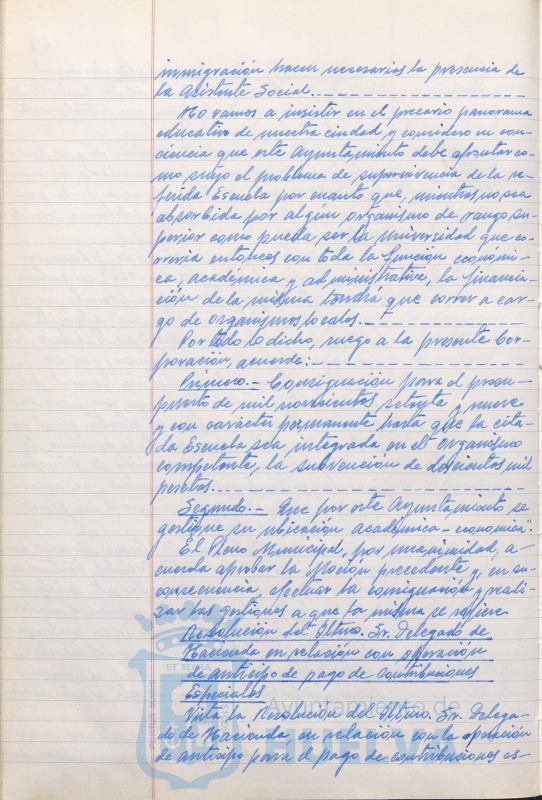 inmigración hacen necesarias la presencia de
la Asistente Social.
No vamos a insistir en el precario panorama
educativo de nuestra ciudad, y considero en con-
ciencia que este Ayuntamiento debe afrontar co-
mo suyo el problema de supervivencia de la re-
ferida Escuela por cuanto que, mientras no sea
absorbida por algún organismo de rango su-
perior como pueda ser la Universidad que co-
rrería entonces con toda la función económi-
ca, académica y administrativa, la financia-
ción de la misma tendrá que correr a car-
go de organismos locales.
Por todo lo dicho, ruego a la presente Cor-
poración, acuerde:
Primero.- Consignación para el presu-
puesto de mil novecientos setenta y nueve
y con carácter permanente hasta que la cita-
da Escuela sea integrada en el organismo
competente, la subvención de doscientas mil
pesetas.
Segundo.- Que por este Ayuntamiento se
gestione su ubicación académica-económica".
El Pleno Municipal, por unanimidad, a-
cuerda aprobar la Moción precedente y, en su
consecuencia, efectuar la consignación y reali-
zar las gestiones a que la misma se refiere.
Resolución del Iltmo. Sr. Delegado de
Hacienda en relación con operación
de anticipo de pago de Contribuciones
Especiales
Vista la Resolución del Iltmo. Sr. Delega-
do de Hacienda, en relación con la operación
de anticipo para el pago de contribuciones es-
ET TERRA
PORTUS MARIS
Ayuntamiento de
HUELVA